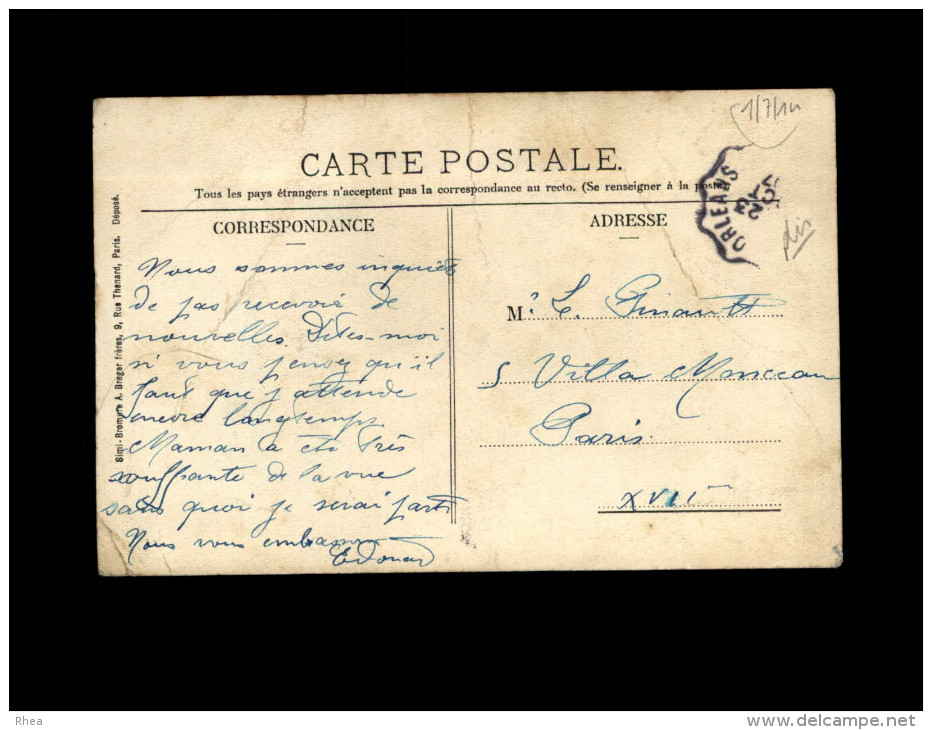 1/7/14
CARTE POSTALE.
Tous les pays étrangers n'acceptent pas la correspondance au recto. (Se renseigner à la poste)
CORRESPONDANCE
ADRESSE
ORLEANS
23
Simi-Bromure A. Breger frères, 9, Rue Thenard, Paris. Déposé.
Nous sommes inquiets
de pas recevoir de
nouvelles. Dites-moi
si vous pensez qu'il
faut que j'attende
encore longtemps
Maman a été très
souffrante de la vue
sans quoi je serai parti
Nous vous embrassons
Edouard
M
5 Villa Monceau
Paris
XVII
Rhea
www.delcampe.net